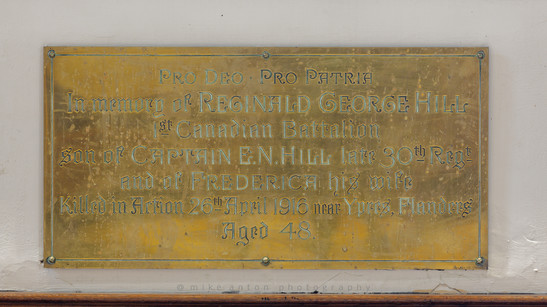 PRO DEO · PRO PATRIA
In memory of REGINALD GEORGE HILL
1st Canadian Battalion
son of CAPTAIN E.N. HILL late 30th Regt
and of FREDERICA his wife
Killed in Action 26th April 1916 near Ypres, Flanders
Aged 48.
© mike anton photography